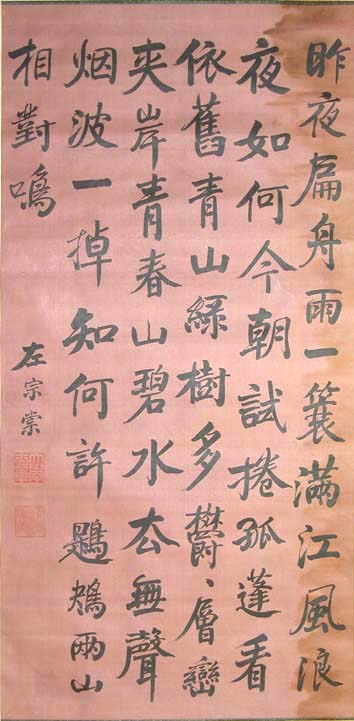 昨夜扁舟雨一簑滿江風浪
夜如何今朝試捲孤蓬看
依舊青山綠樹多鬱、層巒
夾岸青春山碧水去無聲
烟波一掉知何許鶗鴂兩山
相對鳴
左宗棠